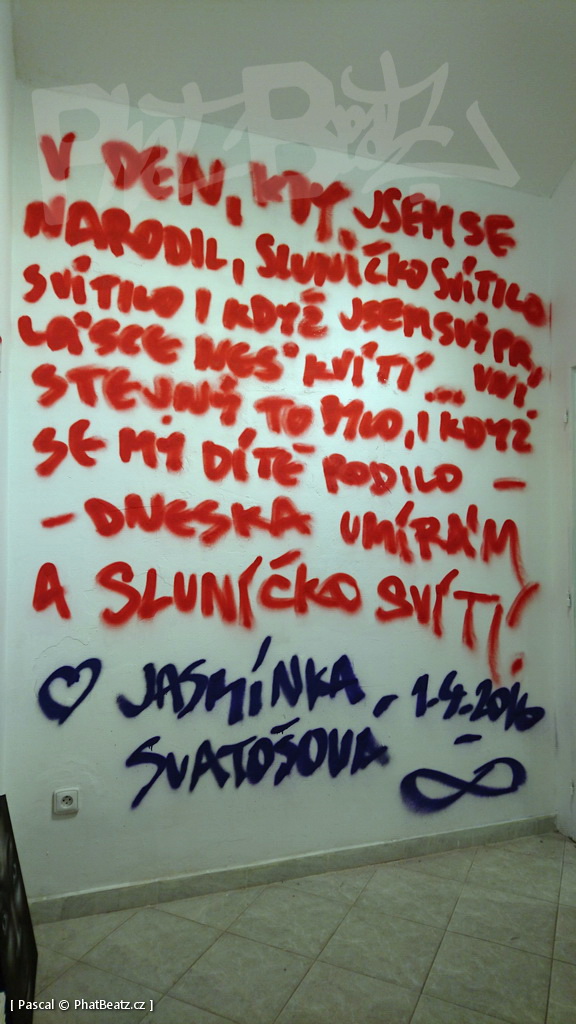 Phat Beatz
V DEN, KDY JSEM SE
NARODIL, SLUNÍČKO SVÍTILO
SVÍTILO I KDYŽ JSEM SVÝ PRVNÍ
LÁSCE NES' KVÍTÍ ...
STEJNÝ TO BYLO, I KDYŽ
SE MÝ DÍTĚ RODILO –
– DNESKA UMÍRÁM
A SLUNÍČKO SVÍTÍ!
JASMÍNKA - 1.4.2016 -
SVATOŠOVA
[ Pascal © PhatBeatz.cz ]